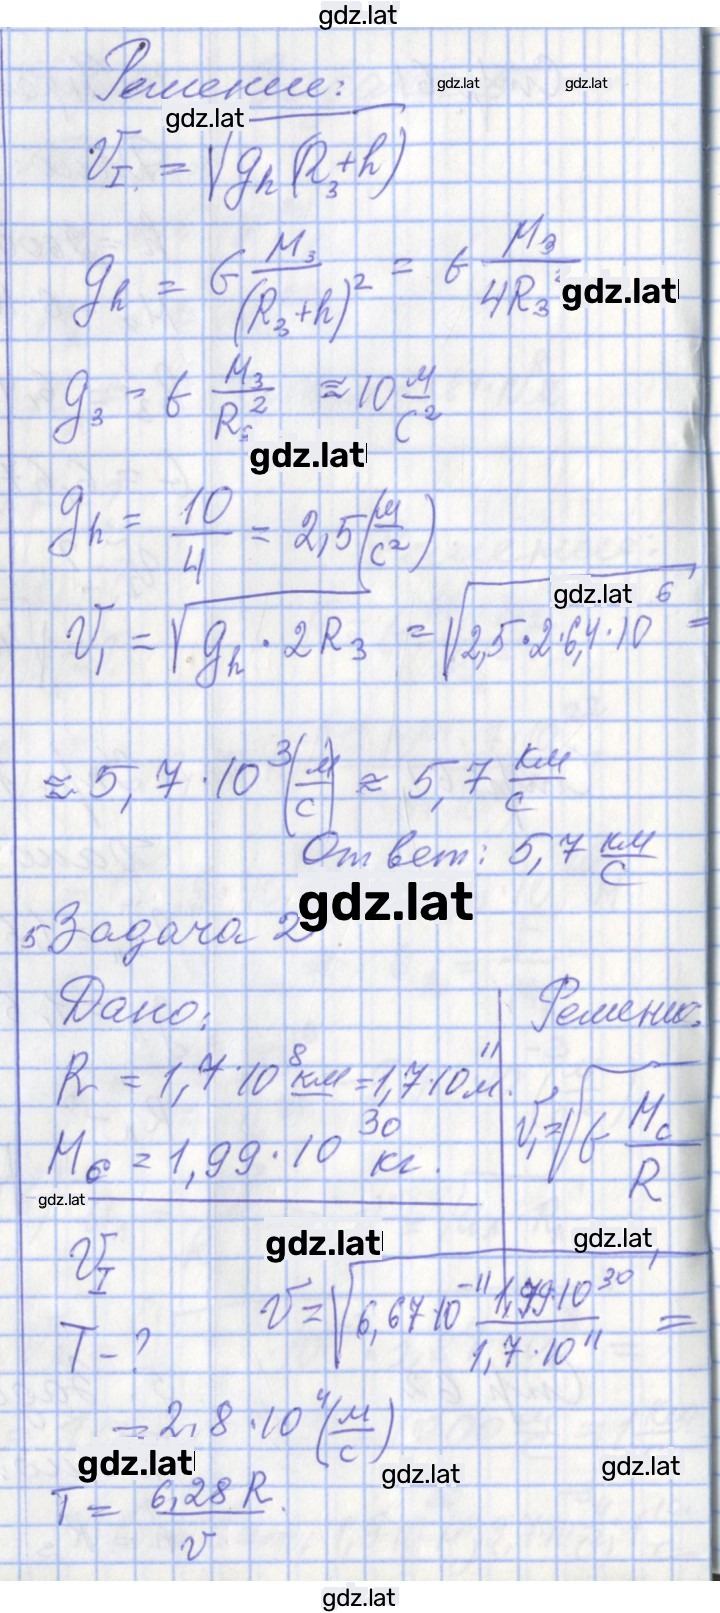 gdz.lat
Решение:
gdz.lat gdz.lat
gdz.lat
V_I = √(g_h (R_з + h))
g_h = G M_з / (R_з + h)² = G M_з / 4R_з²
gdz.lat
g_з = G M_з / R_з² ≈ 10 м/с²
gdz.lat
g_h = 10/4 = 2,5 (м/с²)
gdz.lat
V_1 = √(g_h · 2R_з) = √(2,5 · 2 · 6,4 · 10⁶) =
≈ 5,7 · 10³ (м/с) ≈ 5,7 км/с
Ответ: 5,7 км/с
gdz.lat
5 Задача 2
Дано:
R = 1,7 · 10⁸ км = 1,7 · 10¹¹ м.
M_c = 1,99 · 10³⁰ кг.
gdz.lat
V_I
T - ?
Решение:
V_1 = √(G M_c / R)
gdz.lat
gdz.lat
V = √(6,67 · 10⁻¹¹ 1,99 · 10³⁰ / 1,7 · 10¹¹) =
= 2,8 · 10⁴ (м/с)
gdz.lat
gdz.lat
gdz.lat
T = 6,28 R / V.
gdz.lat